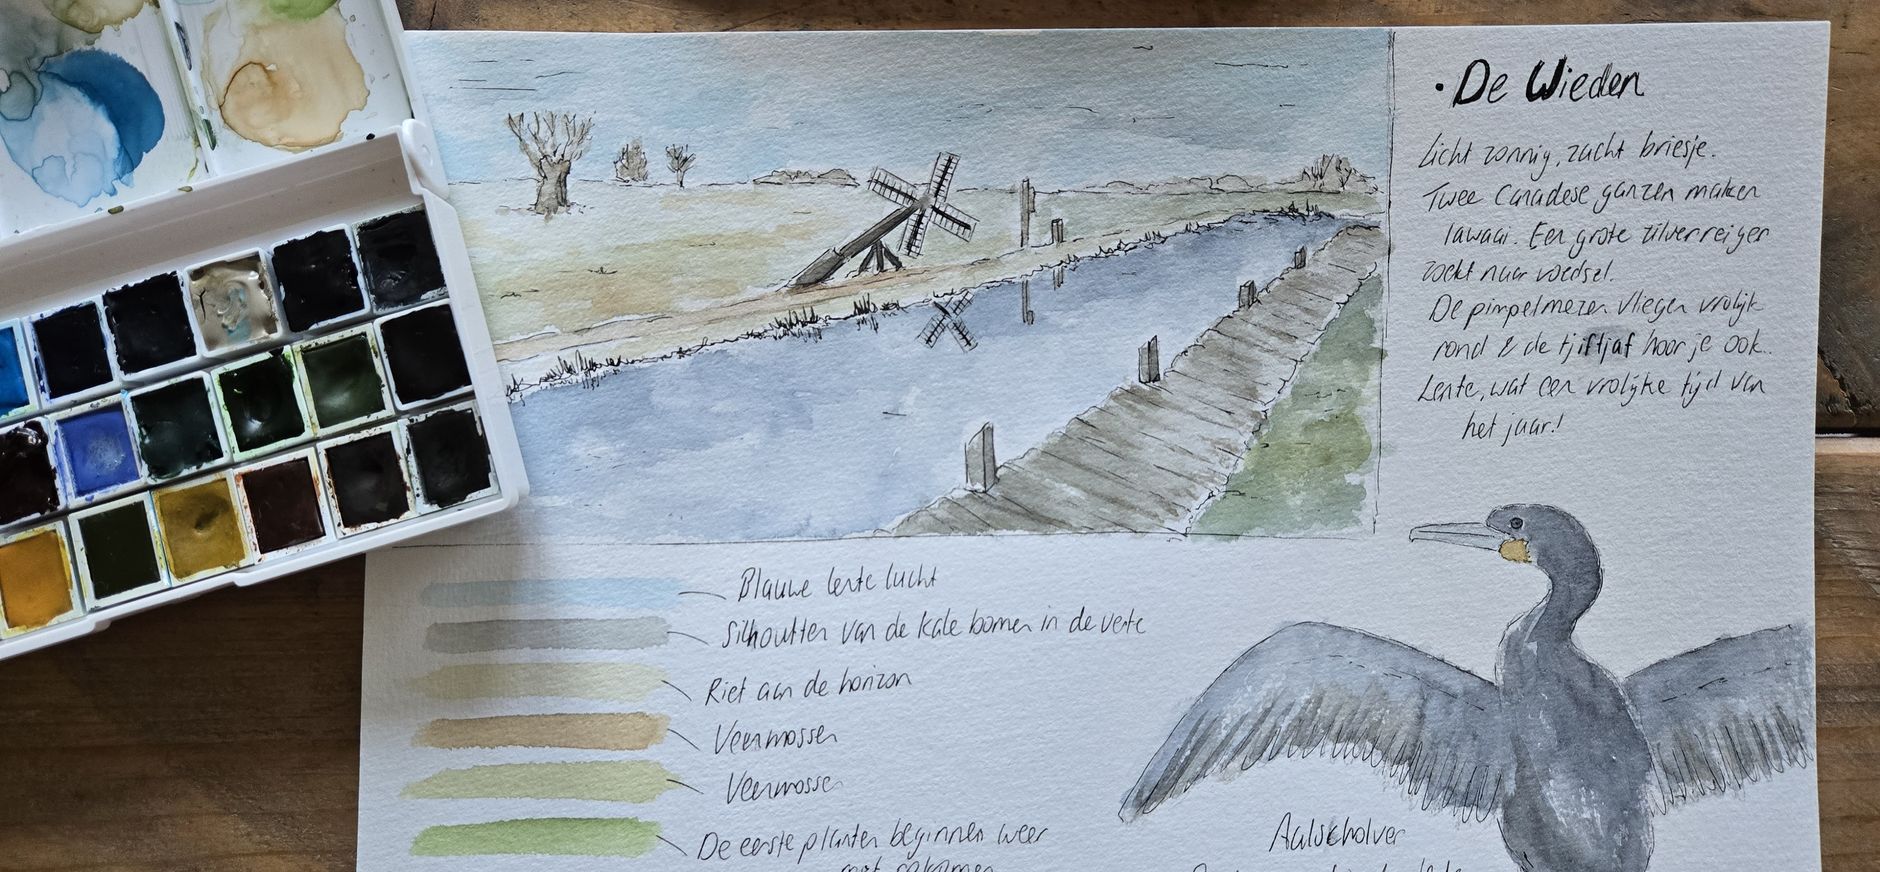 De Wieden
Licht zonnig, zacht briesje.
Twee Canadese ganzen maken
lawaai. Een grote zilverreiger
zoekt naar voedsel.
De pimpelmezen vliegen vrolijk
rond & de tjiftjaf hoor je ook..
Lente, wat een vrolijke tijd van
het jaar!
Blauwe lente lucht
Silhoutten van de kale bomen in de verte
Riet aan de horizon
Veenmossen
Veenmossen
De eerste planten beginnen weer
Aalscholver